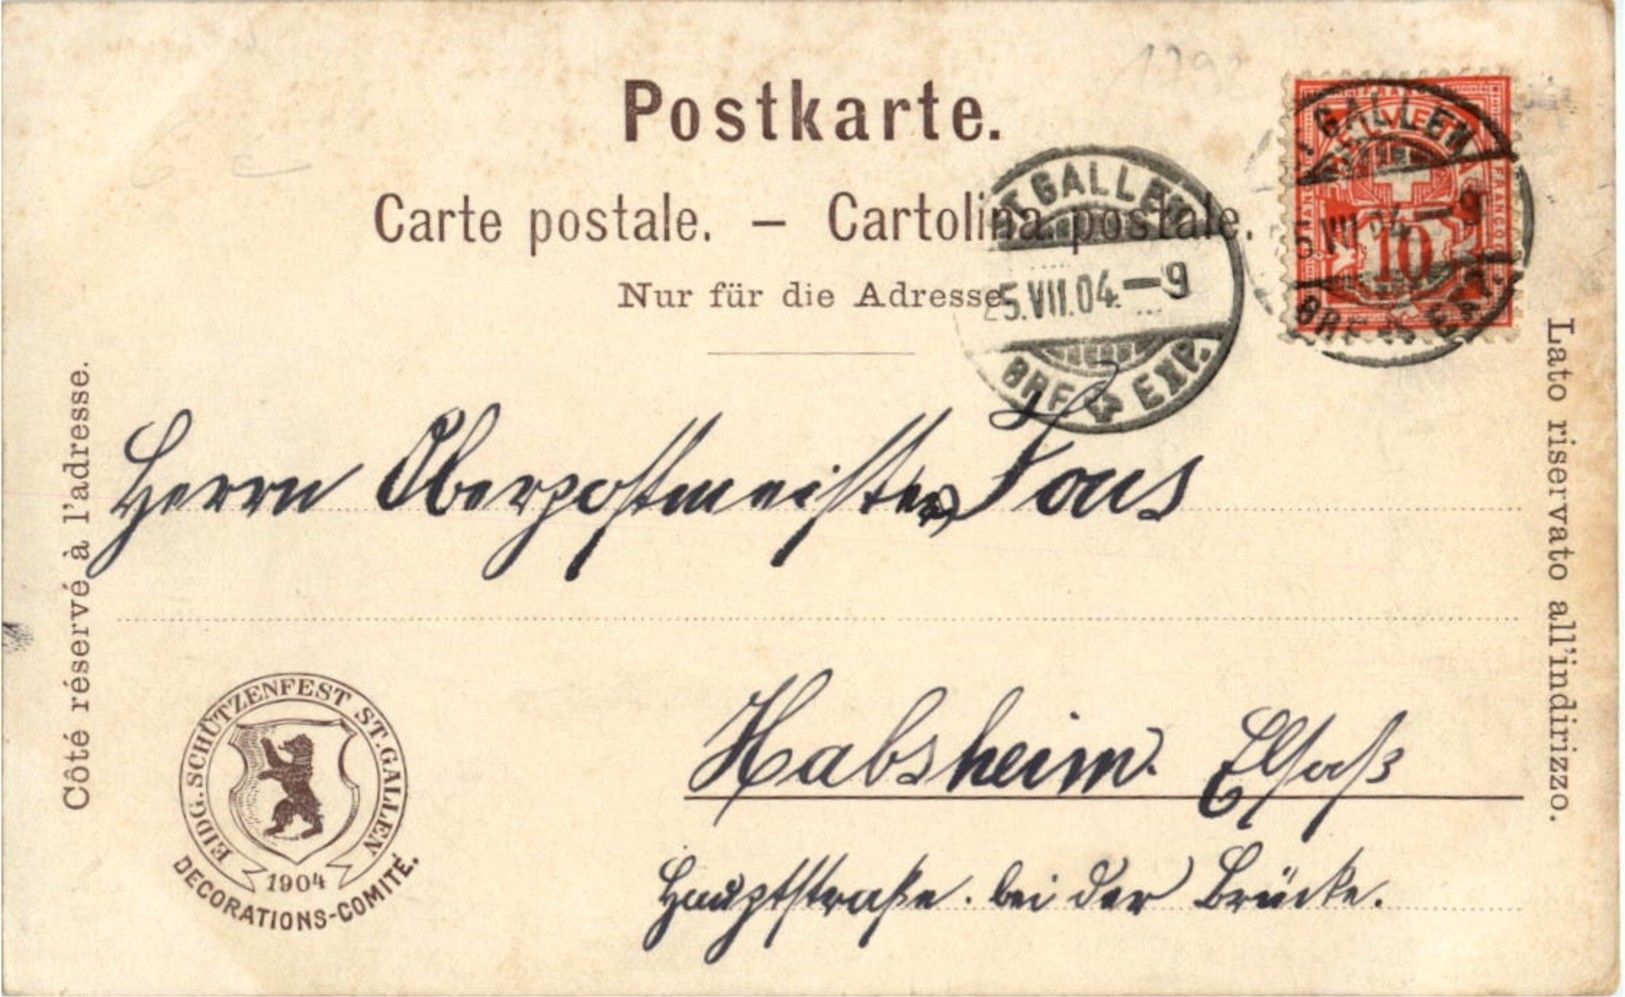 Postkarte.
Carte postale. – Cartolina postale.
Nur für die Adresse.
T. GALLEN
25.VII.04.–9
BRF. EXP.
GALLEN
5.VII.04.–9
BRF. EXP.
HELVETIA
FRANCO
10
Côté réservé à l'adresse.
Lato riservato all'indirizzo.
Herrn Oberpostmeister Fous
Habsheim. Elsaß
Hauptstraße. bei der Brücke.
EIDG. SCHÜTZENFEST ST. GALLEN
1904
DECORATIONS-COMITÉ.